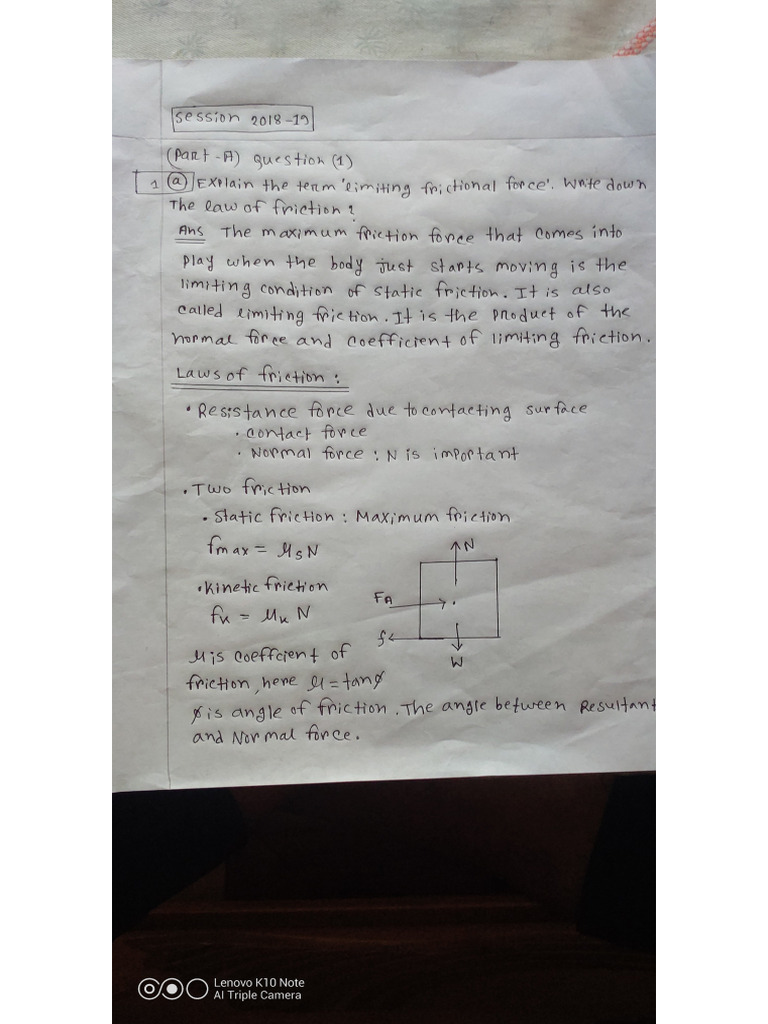 Session 2018-19
(Part-A) Question (1)
1 (a) Explain the term 'limiting frictional force'. Write down
The law of friction?
Ans The maximum friction force that comes into
play when the body just starts moving is the
limiting condition of static friction. It is also
called limiting friction. It is the product of the
normal force and coefficient of limiting friction.
Laws of friction:
• Resistance force due to contacting surface
• contact force
• Normal force : N is important
• Two friction
• Static friction : Maximum friction
fmax = μsN
• Kinetic friction
fk = μk N
N
FA
f
W
μ is coeffcient of
friction, here μ = tanø
ø is angle of friction. The angle between Resultant
and Normal force.
Lenovo K10 Note
AI Triple Camera